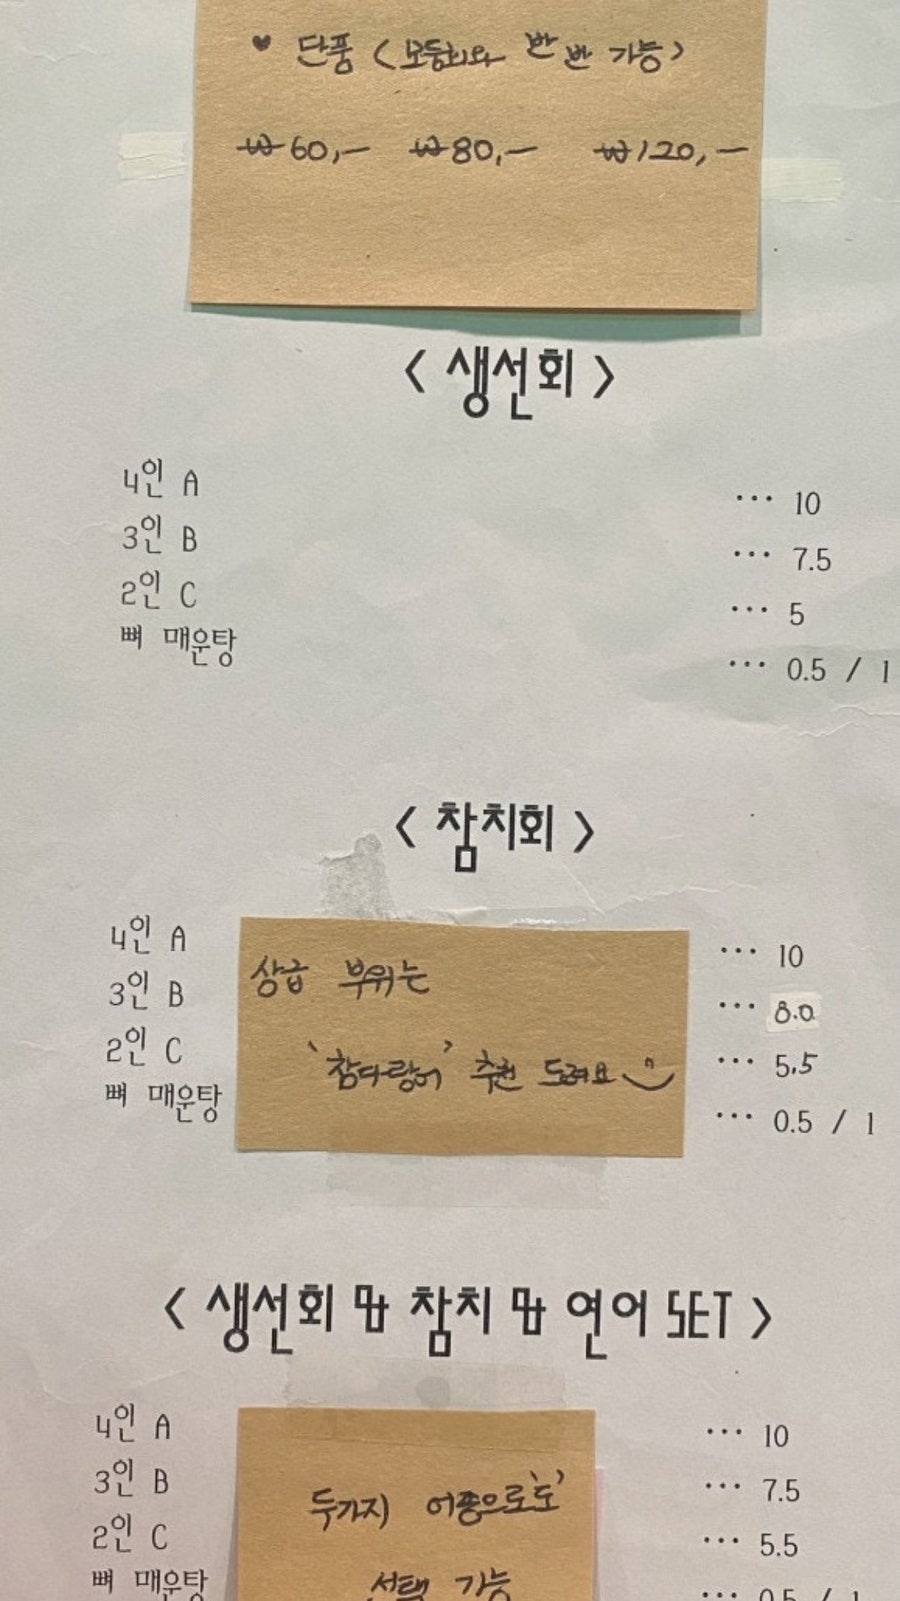 ♥ 단품 (모둠회와 반반 가능)
₩60,- ₩80,- ₩120,-
< 생선회 >
4인 A ... 10
3인 B ... 7.5
2인 C ... 5
뼈 매운탕 ... 0.5 / 1
< 참치회 >
4인 A ... 10
3인 B ... 8.0
2인 C ... 5.5
뼈 매운탕 ... 0.5 / 1
상급 부위는
'참다랑어' 추천 드려요
< 생선회 & 참치 & 연어 SET >
4인 A ... 10
3인 B ... 7.5
2인 C ... 5.5
뼈 매운탕 ... 0.5 / 1
두가지 어종으로'도'
선택 가능